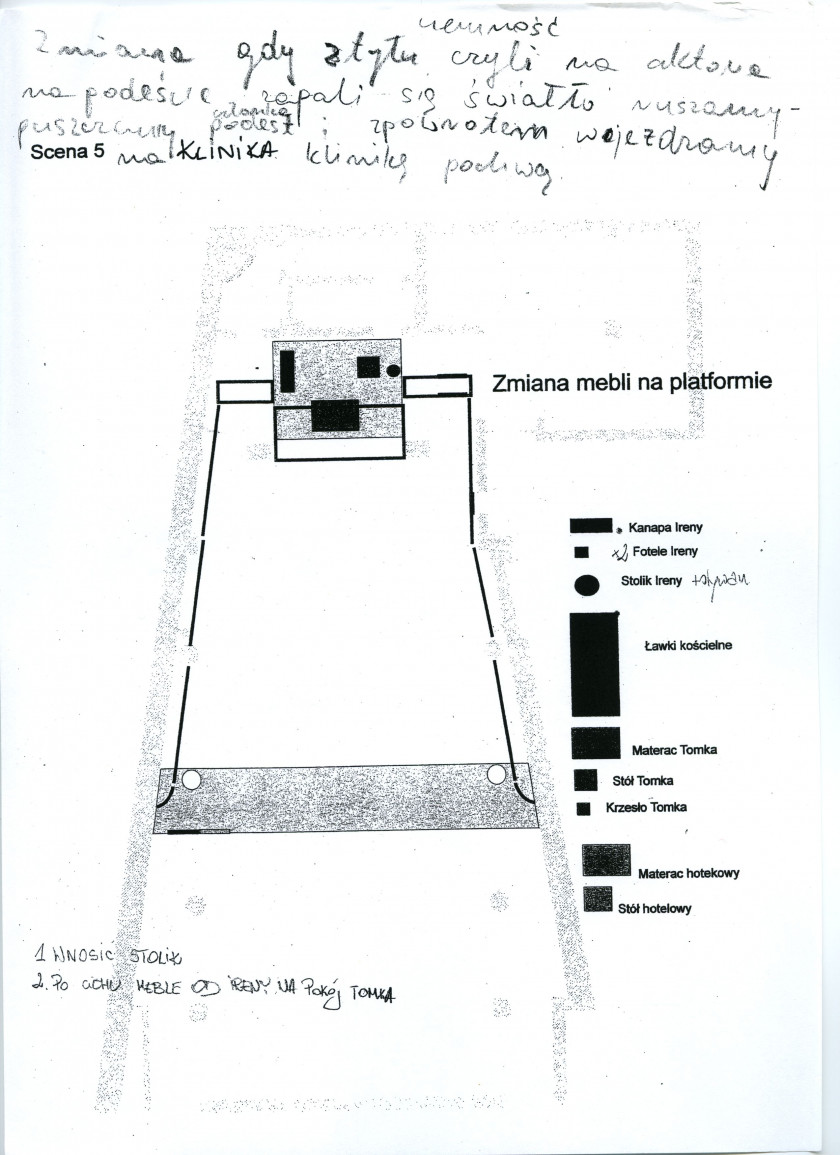 ciemność
Zmiana gdy z tyłu czyli na aktora
na podeście zapali się światło ruszamy -
puszczamy podest i zpowrotem wjeżdzamy
Scena 5 na KLINIKA klinikę
Zmiana mebli na platformie
Kanapa Ireny
x2 Fotele Ireny
Stolik Ireny
Ławki kościelne
Materac Tomka
Stół Tomka
Krzesło Tomka
Materac hotekowy
Stół hotelowy
1 WNOSIĆ STOLIK
2. PO CICHU MEBLE OD IRENY NA POKÓJ TOMKA